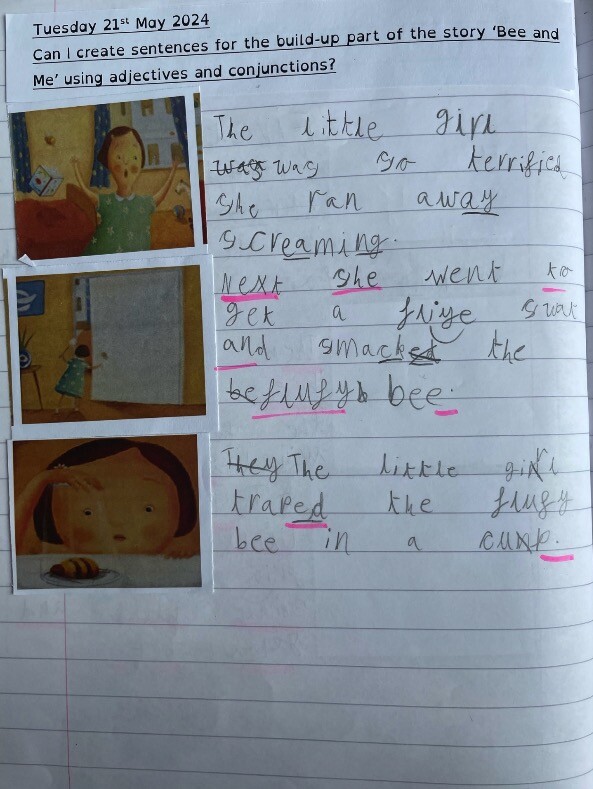 Tuesday 21st May 2024
Can I create sentences for the build-up part of the story 'Bee and
Me' using adjectives and conjunctions?
The little girl
was was so terrified
she ran away
screaming.
Next she went to
get a fliye swat
and smacked the
be flufy b bee.
They The little girl
traped the flufy
bee in a cup.